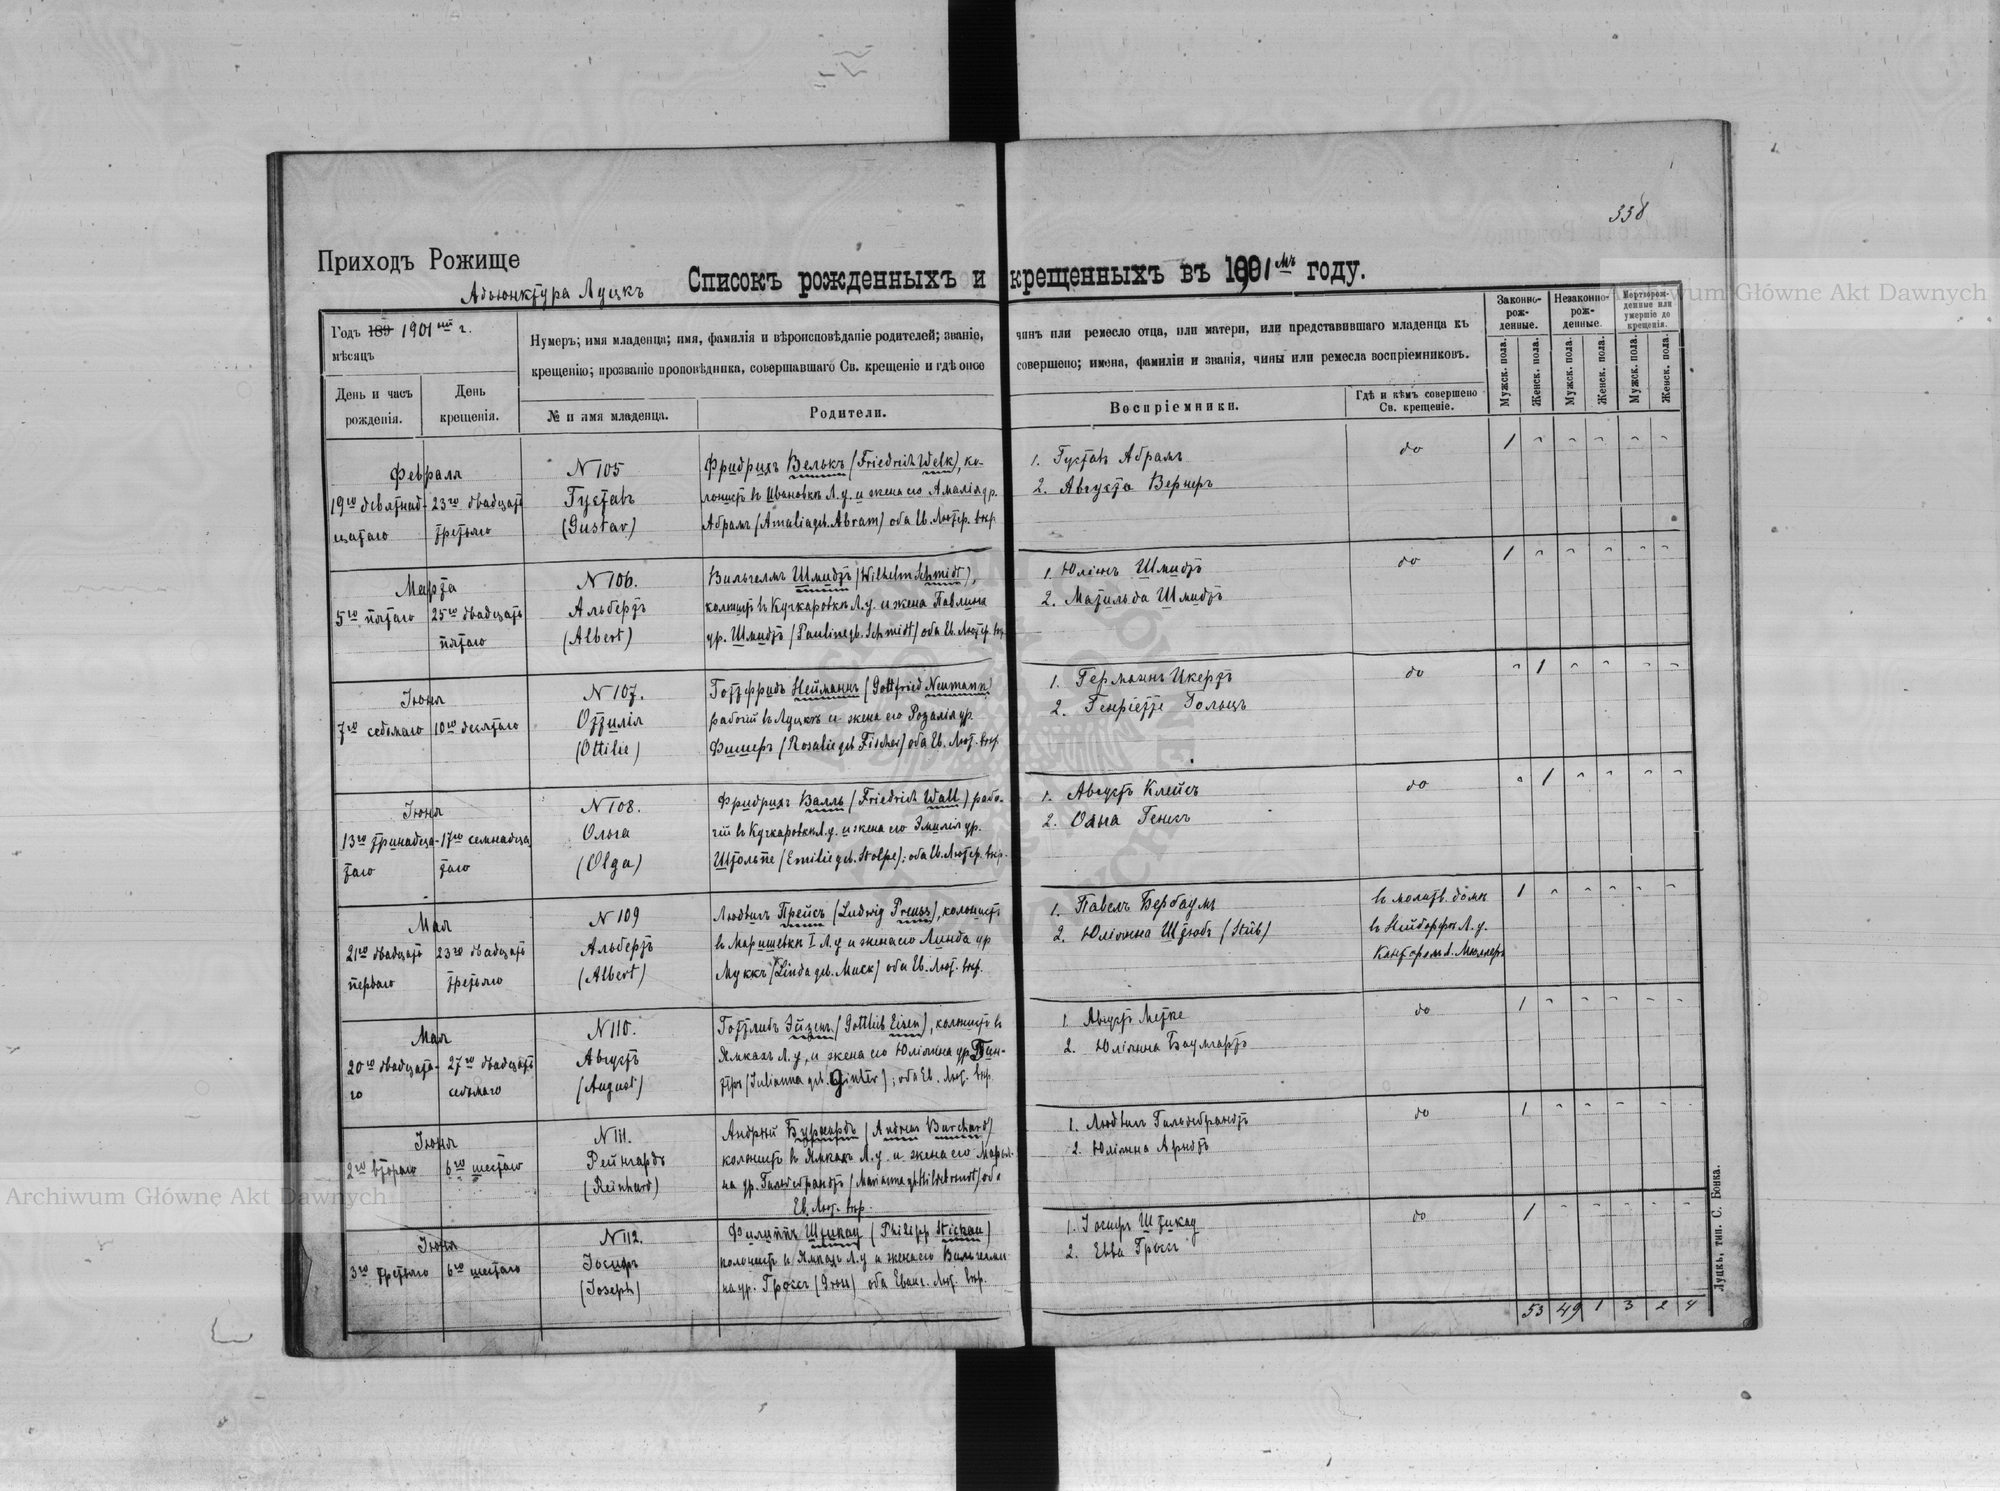 338
Приходъ Рожище
Адъюнктура Луцкъ
Списокъ рожденныхъ и крещенныхъ въ 1901мъ году.
Годъ 189 1901ый г.
мѣсяцъ
Нумеръ; имя младенца; имя, фамилія и вѣроисповѣданіе родителей; званіе, чинъ или ремесло отца, или матери, или представившаго младенца къ
крещенію; прозваніе проповѣдника, совершавшаго Св. крещеніе и гдѣ оное совершено; имена, фамиліи и званія, чины или ремесла воспріемниковъ.
Законно-
рож-
денные.
Незаконно-
рож-
денные.
Мертворож-
денные или
умершіе до
крещенія.
День и часъ
рожденія.
День
крещенія.
№ и имя младенца.
Родители.
Воспріемники.
Гдѣ и кѣмъ совершено
Св. крещеніе.
Мужск. пола.
Женск. пола.
Мужск. пола.
Женск. пола.
Мужск. пола.
Женск. пола.
Февраля
19го девятнад-
цатаго
23го двадцать
третьяго
N 105
Густавъ
(Gustav)
Фридрихъ Велькъ (Friedrich Welk), ко-
лонистъ в Ивановкѣ Л.у. и жена его Амалія ур.
Абрамъ (Amalia geb. Abram) оба Ев. Лютер. вѣр.
1. Густавъ Абрамъ
2. Августа Вернеръ
do
1
Марта
5го пятаго
25го двадцать
пятаго
N 106.
Альбертъ
(Albert)
Вильгелмъ Шмидтъ (Wilhelm Schmidt),
колонистъ в Кучкаровкѣ Л.у. и жена Павлина
ур. Шмидтъ (Pauline gb. Schmidt) оба Ев. Лютер. вѣр.
1. Юліусъ Шмидтъ
2. Матильда Шмидтъ
do
1
Іюня
7го седьмаго
10го десятаго
N 107.
Оттилія
(Ottilie)
Готтфридъ Нейманъ (Gottfried Neumann)
рабочій въ Луцкѣ и жена его Розалія ур.
Фишеръ (Rosalie geb. Fischer) оба Ев. Лют. вѣр.
1. Германъ Икертъ
2. Генріетте Гольцъ
do
1
Іюня
13го тринадца-
таго
17го семнадца
таго
N 108.
Ольга
(Olga)
Фридрихъ Валль (Friedrich Wall) рабо-
чій в Кучкаровкѣ Л.у. и жена его Эмилія ур.
Штольпе (Emilie geb. Stolpe); оба Ев. Лютер. вѣр.
1. Августъ Клейсъ
2. Ольга Генигъ
do
1
Мая
21го двадцать
перваго
23го двадцать
третьяго
N 109
Альбертъ
(Albert)
Людвигъ Прейсъ (Ludwig Preuss), колонистъ
в Маришевкѣ I Л.у и жена его Линда ур
Муккъ (Linda geb. Muck) оба Ев. Лют. вѣр.
1. Павелъ Бербаумъ
2. Юліянна Штюбъ (Stüb)
в молитв. домѣ
в Нейдорфѣ Л.у.
Канторомъ А. Мюллеръ
1
Мая
20го двадцата-
го
27го двадцать
седьмаго
N 110.
Августъ
(August)
Готтлибъ Эйзенъ (Gottlieb Eisen), колонистъ в
Ямкахъ Л.у, и жена его Юліянна ур. Гин-
теръ (Julianna geb. Ginter); оба Ев. Лют. вѣр.
1. Августъ Метке
2. Юліянна Баумгартъ
do
1
Іюня
2го втораго
6го шестаго
N 111.
Рейнгардъ
(Reinhard)
Андрей Бурхардъ (Andreas Burchard)
колонистъ в Ямкахъ Л.у. и жена его Марьян-
на ур. Гильдебрандтъ (Marianna gb Hildebrandt) оба
Ев. Лют. вѣр.
1. Людвигъ Гильдебрандтъ
2. Юліянна Арндтъ
do
1
Іюня
3го третьяго
6го шестаго
N 112.
Іосифъ
(Joseph)
Филиппъ Штикау (Philipp Stickau)
колонистъ в Ямкахъ Л.у и жена его Вильгелми-
на ур. Гроссъ (Gross) оба Еванг. Лют. вѣр.
1. Іосифъ Штикау
2. Евва Гроссъ
do
1
53 49 1 3 2 4
Луцкъ, тип. С. Бонка.
Archiwum Główne Akt Dawnych
Archiwum Główne Akt Dawnych